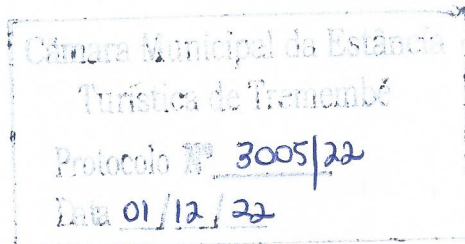 Câmara Municipal da Estância
Turística de Tremembé
Protocolo Nº 3005/22
Data 01/12/22